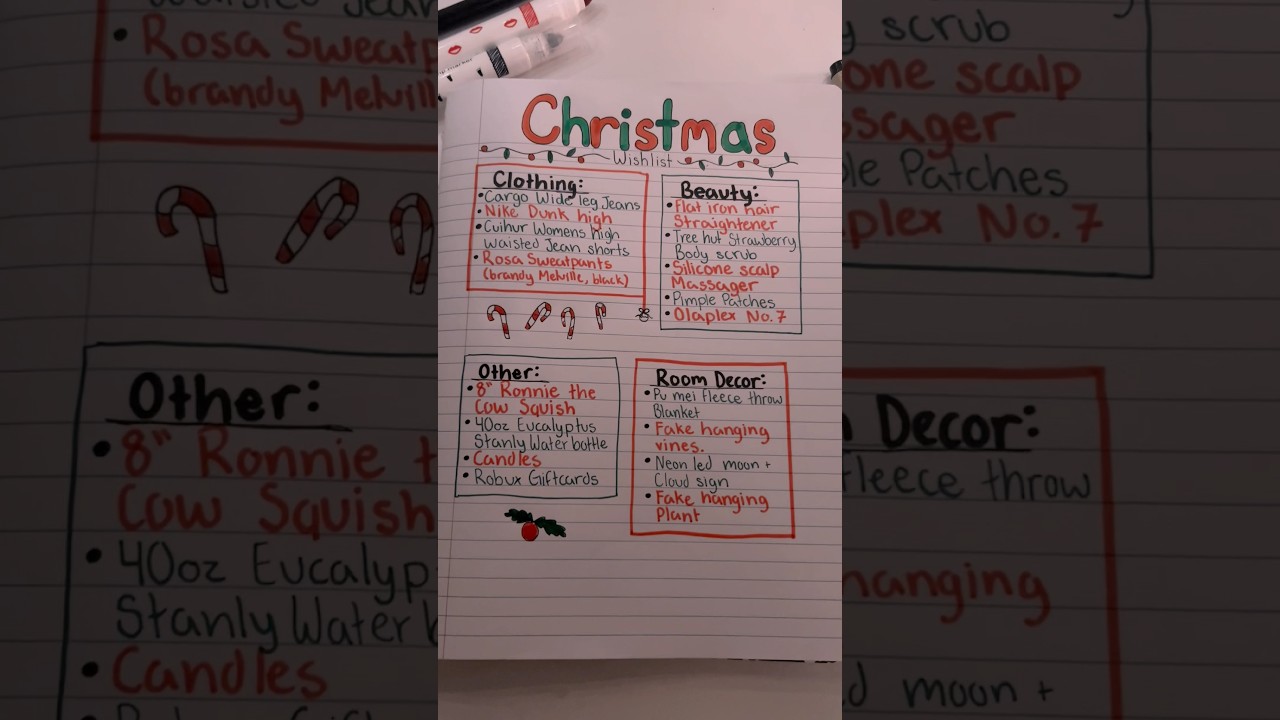 Christmas
Wishlist
Clothing:
• Cargo Wide leg Jeans
• Nike Dunk high
• Cuihur Womens high
waisted Jean shorts
• Rosa Sweatpants
(brandy Melville, black)
Beauty:
• Flat iron hair
Straightener
• Tree hut Strawberry
Body scrub
• Silicone scalp
Massager
• Pimple Patches
• Olaplex No. 7
Other:
• 8" Ronnie the
Cow Squish
• 40oz Eucalyptus
Stanly Water bottle
• Candles
• Robux Giftcards
Room Decor:
• Pv mei fleece throw
Blanket
• Fake hanging
vines.
• Neon led moon +
Cloud sign
• Fake hanging
Plant